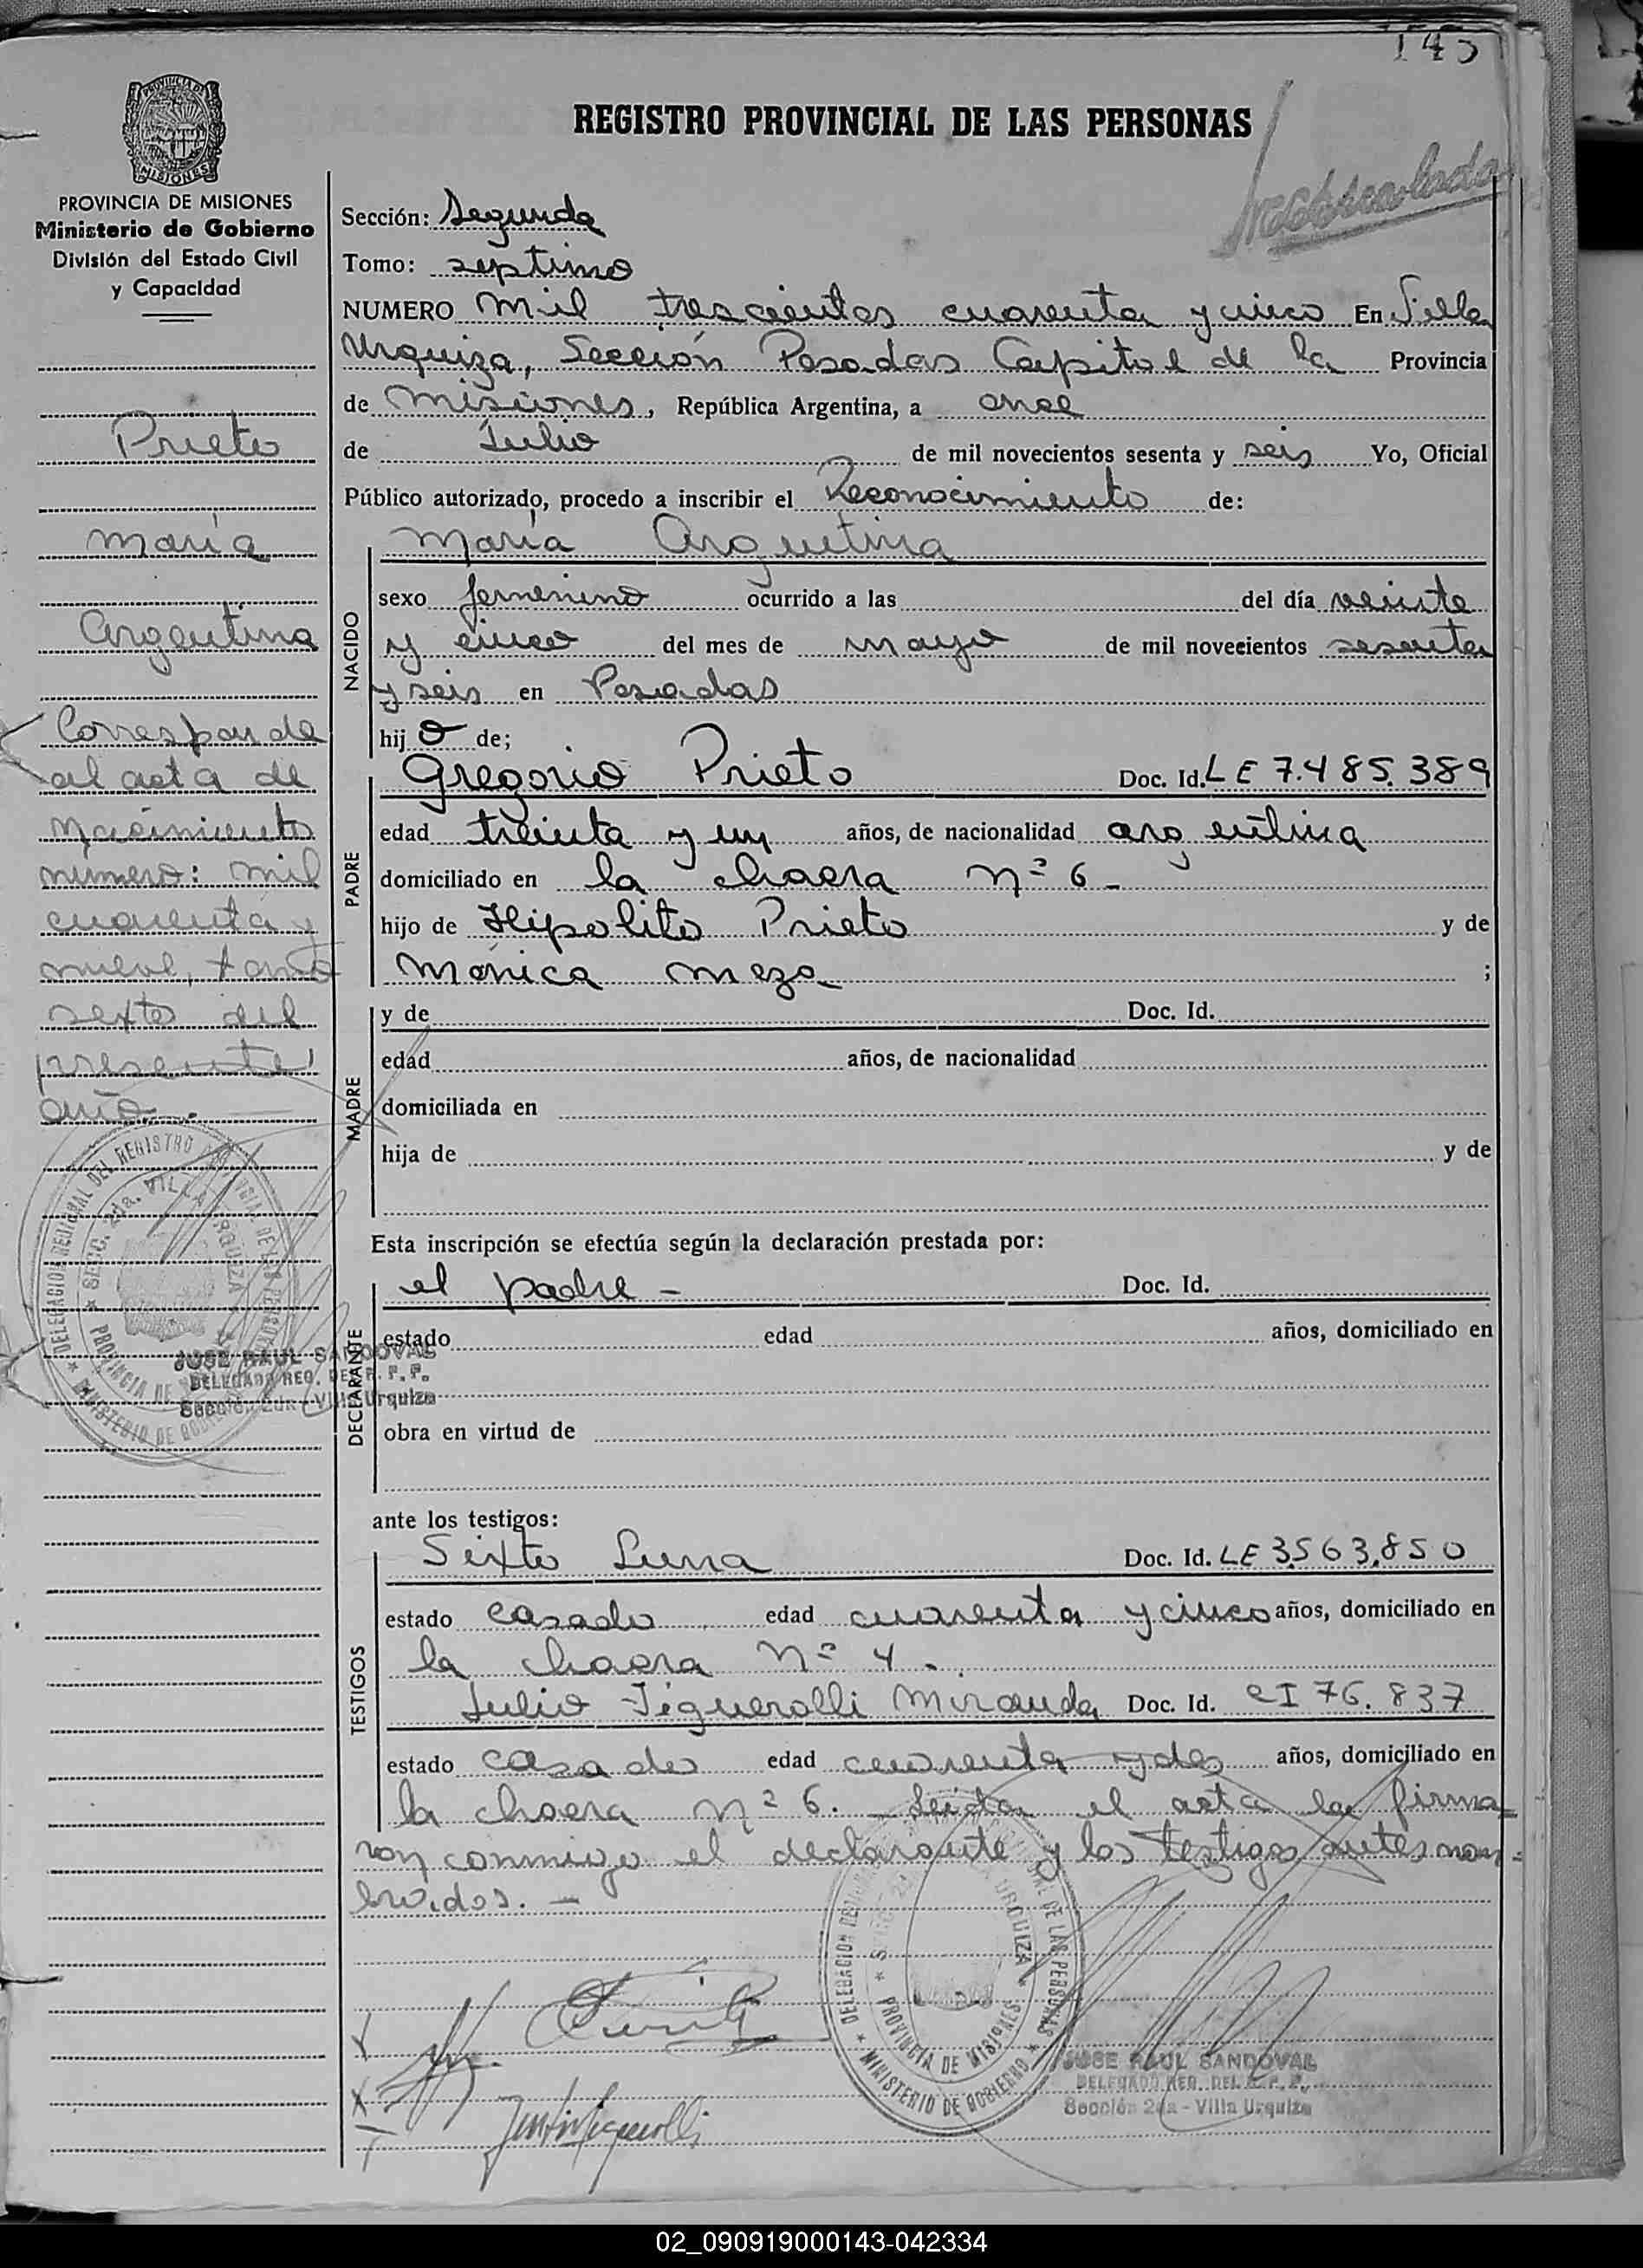 145
PROVINCIA DE MISIONES
REGISTRO PROVINCIAL DE LAS PERSONAS
PROVINCIA DE MISIONES
Ministerio de Gobierno
División del Estado Civil
y Capacidad
Prieto
María
Argentina
Corresponde
al acta de
Nacimiento
numero: mil
cuarenta y
nueve, tomo
sexto del
presente
año.-
Sección: Segunda
Tomo: septimo
NUMERO mil trescientos cuarenta y cinco En Villa
Urquiza, Sección Posadas Capital de la Provincia
de Misiones, República Argentina, a once
de Julio de mil novecientos sesenta y seis Yo, Oficial
Público autorizado, procedo a inscribir el Reconocimiento de:
María Argentina
NACIDO
sexo femenino ocurrido a las del día veinte
y cinco del mes de mayo de mil novecientos sesenta
y seis en Posadas
hij a de;
PADRE
Gregorio Prieto Doc. Id. LE 7.485.389
edad treinta y un años, de nacionalidad argentina
domiciliado en la chacra Nº 6-
hijo de Hipolito Prieto y de
Mónica Meza ;
MADRE
y de Doc. Id.
edad años, de nacionalidad
domiciliada en
hija de y de
Esta inscripción se efectúa según la declaración prestada por:
DECLARANTE
el padre - Doc. Id.
estado edad años, domiciliado en
obra en virtud de
ante los testigos:
TESTIGOS
Sixto Luna Doc. Id. LE 3.563.850
estado casado edad cuarenta y cinco años, domiciliado en
la chacra Nº 4.
Julio Miranda Doc. Id. CI 76.837
estado casado edad cuarenta y dos años, domiciliado en
la chacra Nº 6. Leida el acta la firma=
ron conmigo el declarante y los testigos antes nom=
brados. -
DELEGACION REGIONAL DEL REGISTRO PROVINCIAL DE LAS PERSONAS
SECC. 2da. VILLA URQUIZA
PROVINCIA DE MISIONES
MINISTERIO DE GOBIERNO
JOSE RAUL SANDOVAL
DELEGADO REG. DEL R. P. P.
Sección 2da - Villa Urquiza
DELEGACION REGIONAL DE LAS PERSONAS
URQUIZA
PROVINCIA DE MISIONES
MINISTERIO DE GOBIERNO
JOSE RAUL SANDOVAL
DELEGADO REG. DEL R. P. P.
Sección 2da - Villa Urquiza
02_090919000143-042334